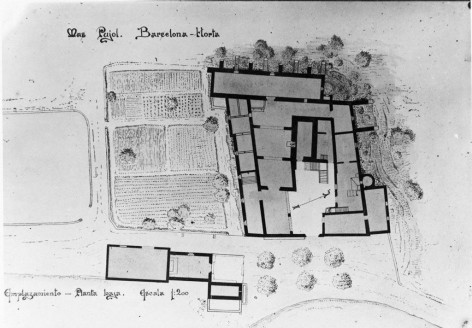 Mas Pujol. Barcelona-Horta
Emplazamiento - Planta baja. Escala 1:200